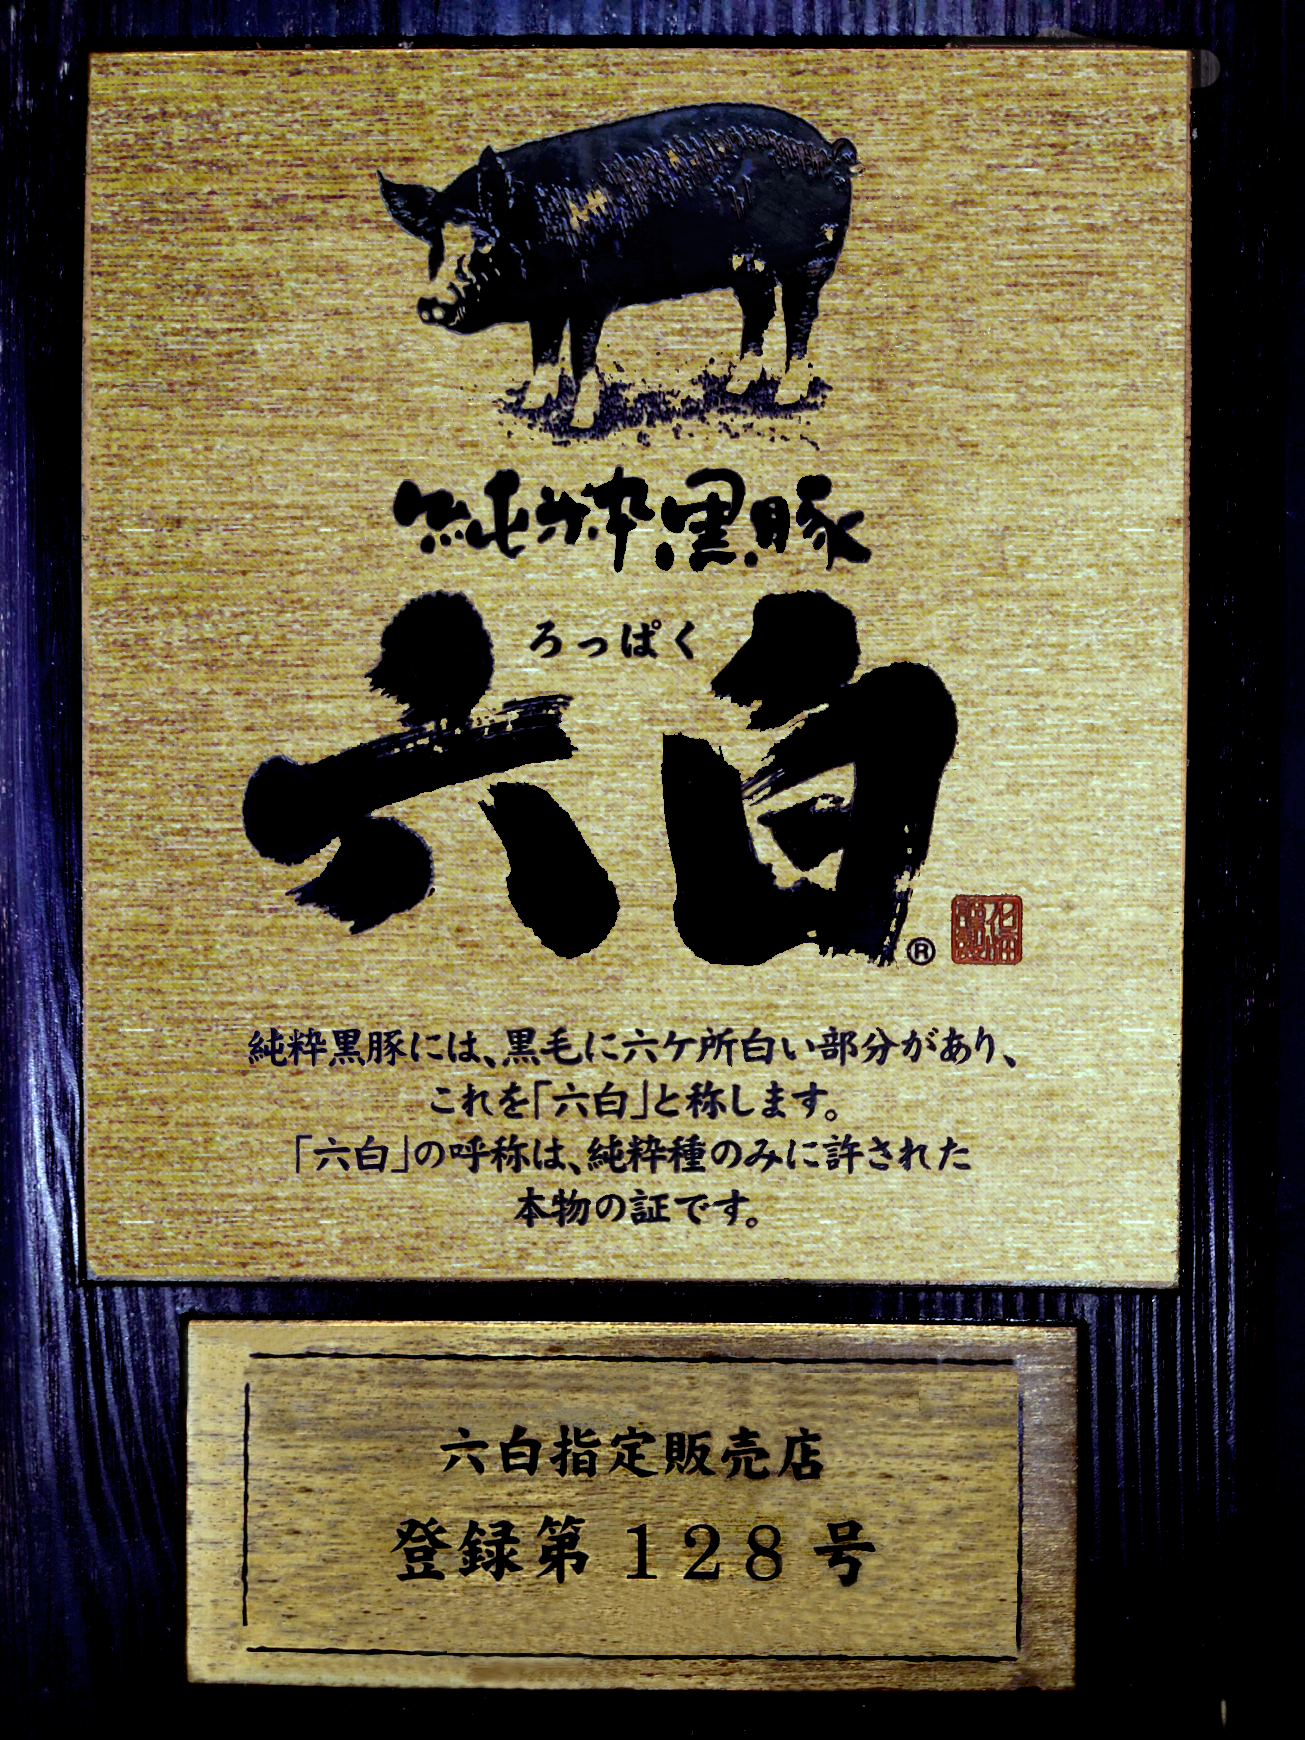 純粋黒豚
ろっぱく
六白
®
純粋黒豚には、黒毛に六ケ所白い部分があり、
これを「六白」と称します。
「六白」の呼称は、純粋種のみに許された
本物の証です。
六白指定販売店
登録第128号